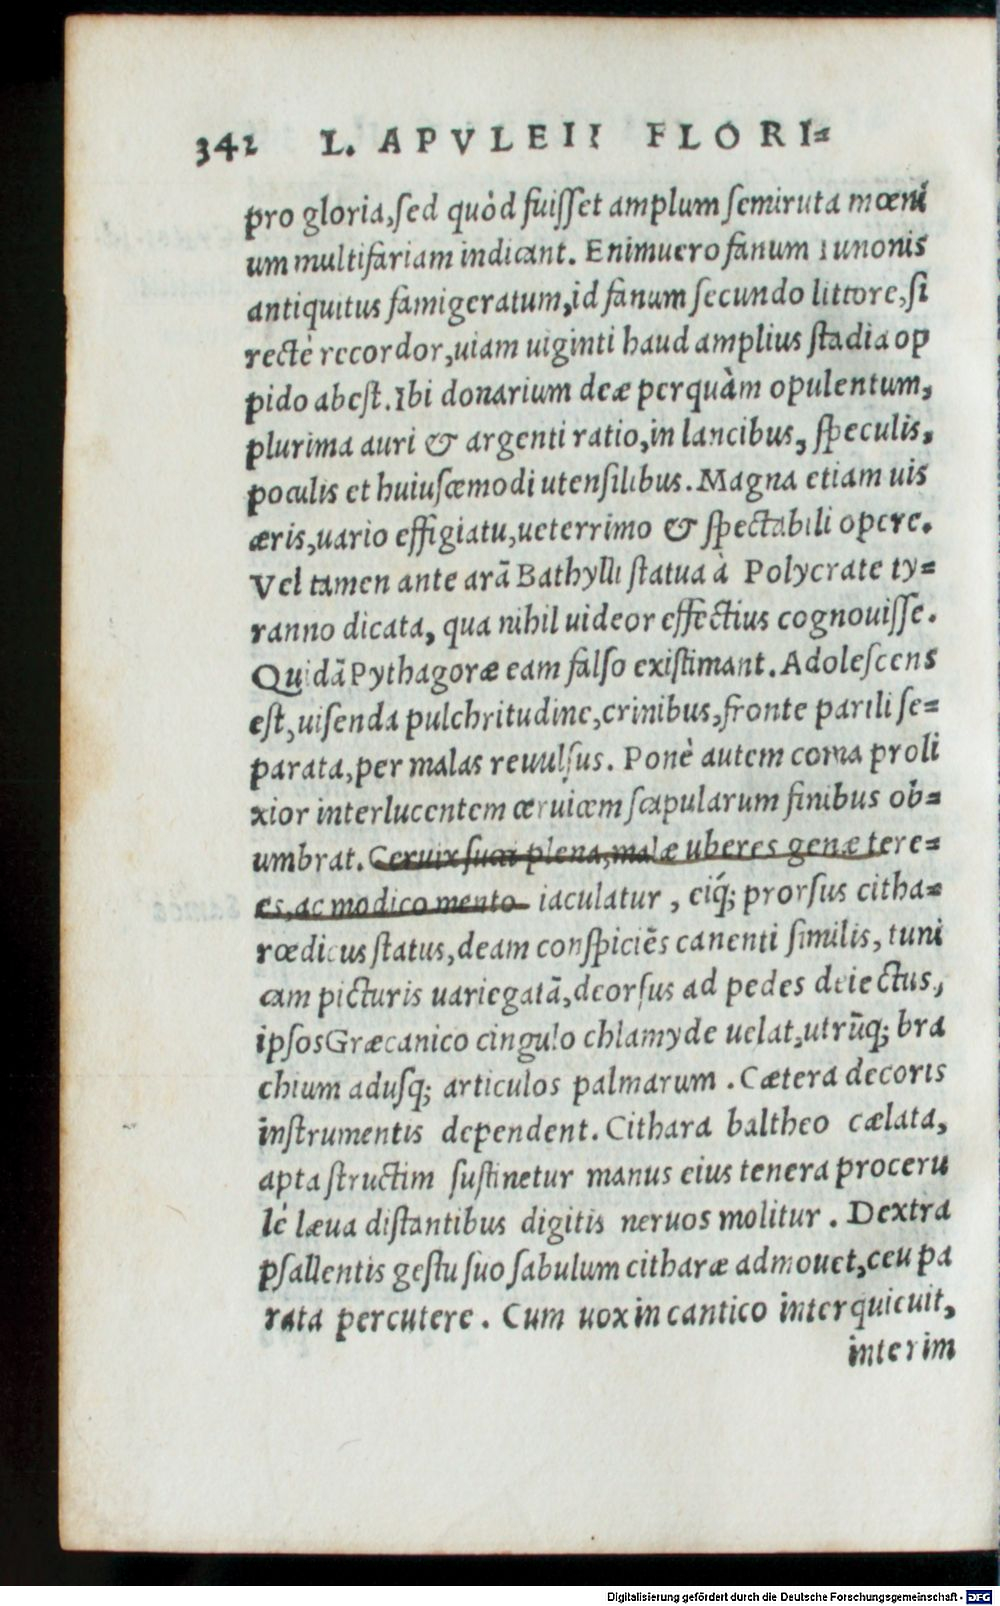 342 L. APVLEII FLORI=
pro gloria, sed quòd fuisset amplum semiruta mœni
um multifariam indicant. Enimuero fanum Iunonis
antiquitus famigeratum, id fanum secundo littore, si
rectè recordor, uiam uiginti haud amplius stadia op
pido abest. Ibi donarium deæ perquàm opulentum,
plurima auri & argenti ratio, in lancibus, speculis,
poculis et huiuscemodi utensilibus. Magna etiam uis
æris, uario effigiatu, ueterrimo & spectabili opere.
Vel tamen ante arā Bathylli statua à Polycrate ty=
ranno dicata, qua nihil uideor effectius cognouisse.
Quidā Pythagoræ eam falso existimant. Adolescens
est, uisenda pulchritudine, crinibus, fronte parili se=
parata, per malas reuulsus. Ponè autem coma proli
xior interlucentem ceruicem scapularum finibus ob=
umbrat. Ceruix suci plena, malæ uberes genæ tere=
es, ac modico mento iaculatur, eiq́; prorsus citha=
rœdicus status, deam conspiciēs canenti similis, tuni
cam picturis uariegatā, deorsus ad pedes deiectus,
ipsos Græcanico cingulo chlamyde uelat, utrūq; bra
chium adusq; articulos palmarum. Cætera decoris
instrumentis dependent. Cithara baltheo cælata,
apta structim sustinetur manus eius tenera proceru
lè læua distantibus digitis neruos molitur. Dextra
psallentis gestu suo sabulum citharæ admouet, ceu pa
rata percutere. Cum uox in cantico interquieuit,
interim
Digitalisierung gefördert durch die Deutsche Forschungsgemeinschaft - DFG